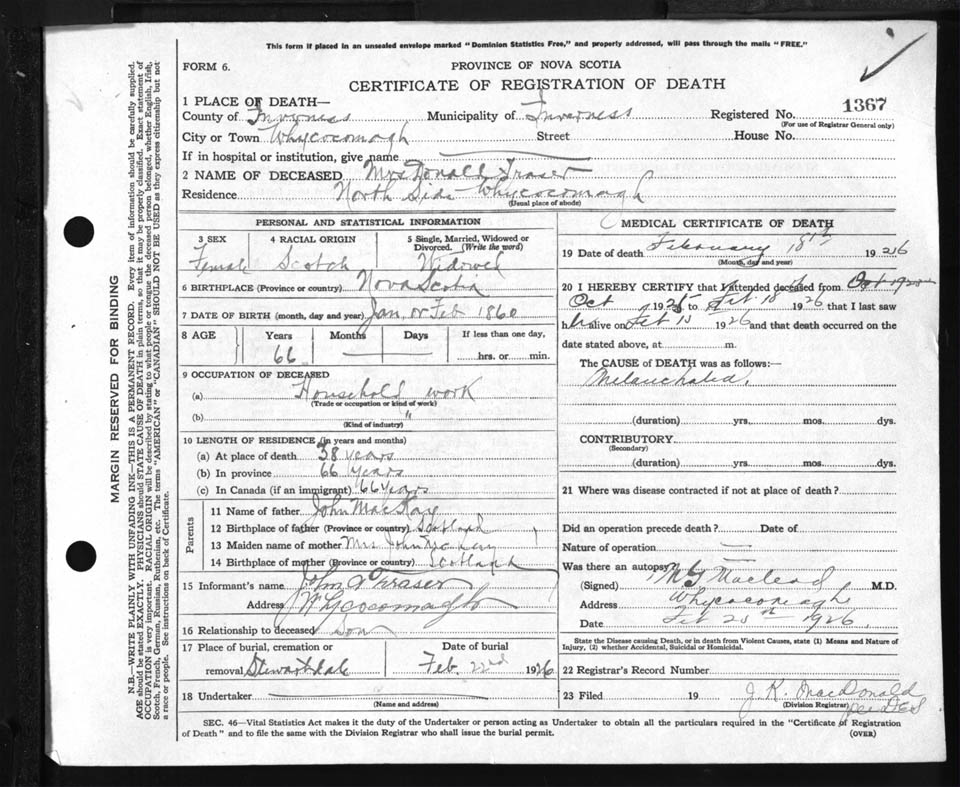 This form if placed in an unsealed envelope marked "Dominion Statistics Free," and properly addressed, will pass through the mails "FREE."
FORM 6.
PROVINCE OF NOVA SCOTIA
CERTIFICATE OF REGISTRATION OF DEATH
1 PLACE OF DEATH—
County of Inverness Municipality of Inverness Registered No. 1367
(For use of Registrar General only)
City or Town Whycocomagh Street House No.
If in hospital or institution, give name
2 NAME OF DECEASED Mrs Donald Fraser
Residence North Side Whycocomagh
(Usual place of abode)
PERSONAL AND STATISTICAL INFORMATION
3 SEX 4 RACIAL ORIGIN 5 Single, Married, Widowed or Divorced. (Write the word)
Female Scotch Widowed
6 BIRTHPLACE (Province or country) Nova Scotia
7 DATE OF BIRTH (month, day and year) Jan, or Feb 1860
8 AGE Years Months Days If less than one day,
66 hrs. or min.
9 OCCUPATION OF DECEASED
(a) Household work
(Trade or occupation or kind of work)
(b) "
(Kind of industry)
10 LENGTH OF RESIDENCE (in years and months)
(a) At place of death 38 years
(b) In province 66 years
(c) In Canada (if an immigrant) 66 years
Parents
11 Name of father John MacKay
12 Birthplace of father (Province or country) Scotland
13 Maiden name of mother Mrs John
14 Birthplace of mother (Province or country) Scotland
15 Informant's name John A Fraser
Address Whycocomagh
16 Relationship to deceased Son
17 Place of burial, cremation or removal Stewartdale Date of burial Feb. 22nd 1926
18 Undertaker
(Name and address)
MEDICAL CERTIFICATE OF DEATH
19 Date of death February 18th 1926
(Month, day and year)
20 I HEREBY CERTIFY that I attended deceased from
Oct 1925 to Feb 18 1926 that I last saw
h alive on Feb 13 1926 and that death occurred on the
date stated above, at m.
The CAUSE of DEATH was as follows:—
(duration) yrs. mos. dys.
CONTRIBUTORY
(Secondary)
(duration) yrs. mos. dys.
21 Where was disease contracted if not at place of death?
Did an operation precede death? Date of
Nature of operation
Was there an autopsy?
(Signed) Macleod M.D.
Address Whycocomagh
Date Feb 1926
State the Disease causing Death, or in death from Violent Causes, state (1) Means and Nature of Injury, (2) whether Accidental, Suicidal or Homicidal.
22 Registrar's Record Number
23 Filed 19 J. K. MacDonald
(Division Registrar)
SEC. 46—Vital Statistics Act makes it the duty of the Undertaker or person acting as Undertaker to obtain all the particulars required in the "Certificate of Registration
of Death" and to file the same with the Division Registrar who shall issue the burial permit. (OVER)
MARGIN RESERVED FOR BINDING
N.B.—WRITE PLAINLY WITH UNFADING INK—THIS IS A PERMANENT RECORD. Every item of information should be carefully supplied.
AGE should be stated EXACTLY. PHYSICIANS should STATE CAUSE OF DEATH in plain terms, so that it may be properly classified. Exact statement of
OCCUPATION is very important. RACIAL ORIGIN will be described by stating to what people or tongue the deceased person belonged, whether English, Irish,
Scotch, French, German, Russian, Ruthenian, etc. The terms "AMERICAN" or "CANADIAN" SHOULD NOT BE USED as they express citizenship but not
a race or people. See instructions on back of Certificate.